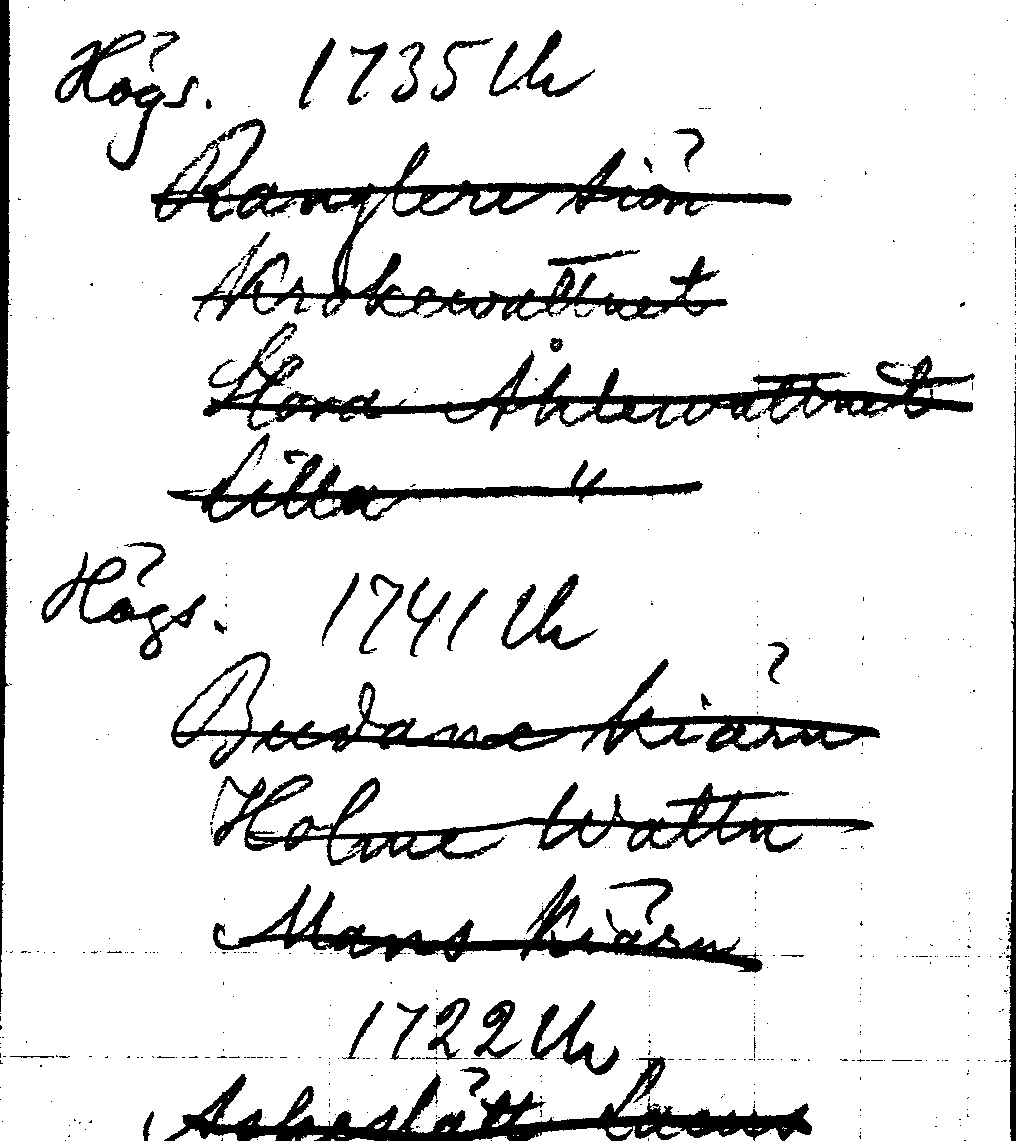 Högs. 1735 Uk
Ranglere siön
Krokewattnet
Stora Åhlewattnet
Lilla "
Högs. 1741 Uk
Budane Kiärn
Holme Wattn
Mans Kiärn
1722 Uk
Askeslätt